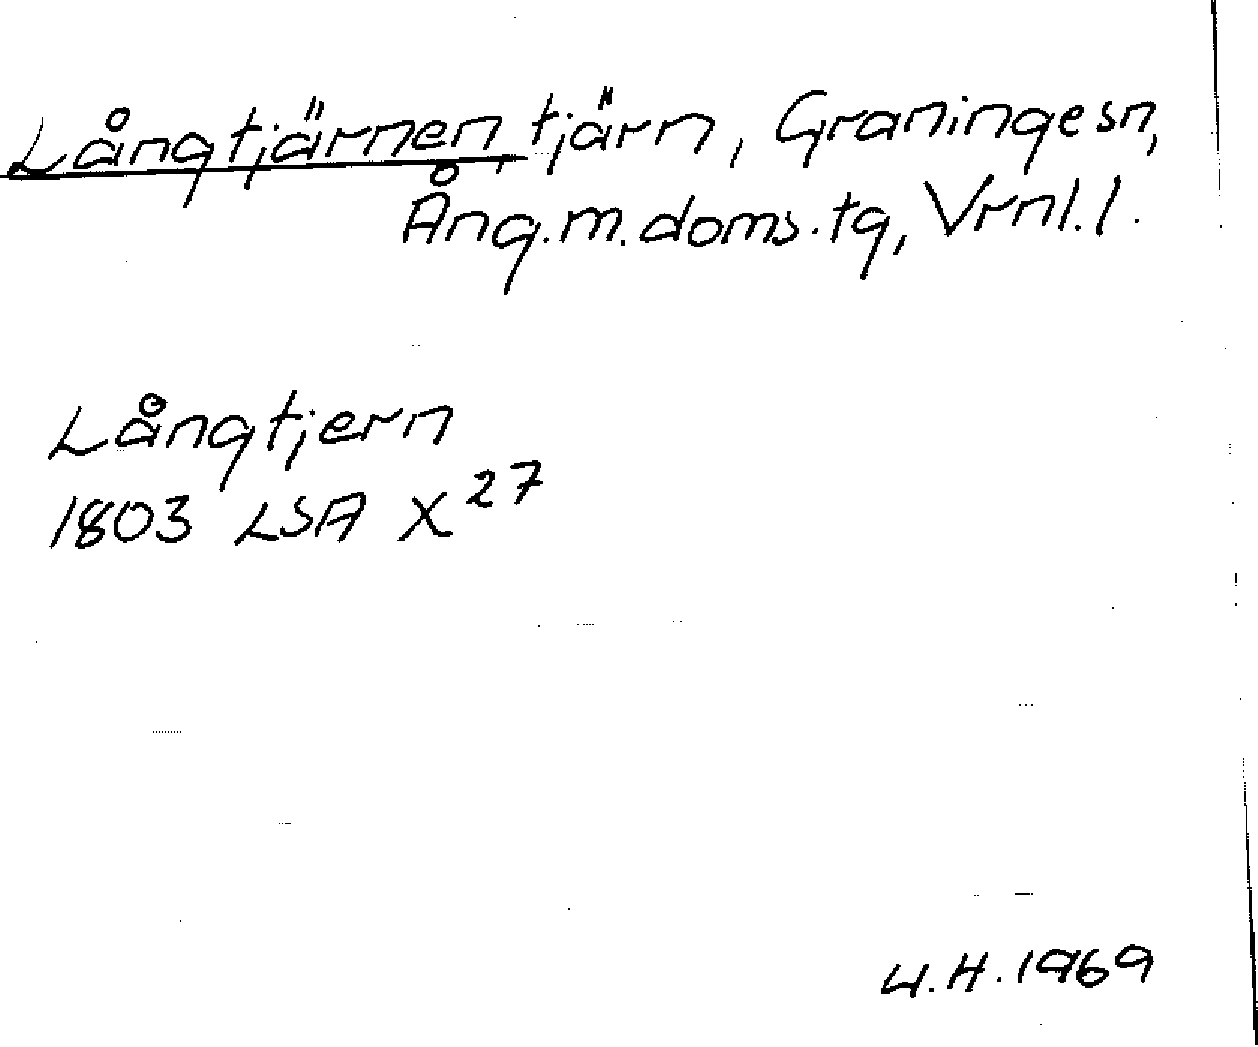 Långtjärnen, tjärn, Graninge sn,
Ång.m.doms.tg, Vrnl.l.
Långtjern
1803 LSA X 27
U.H.1969